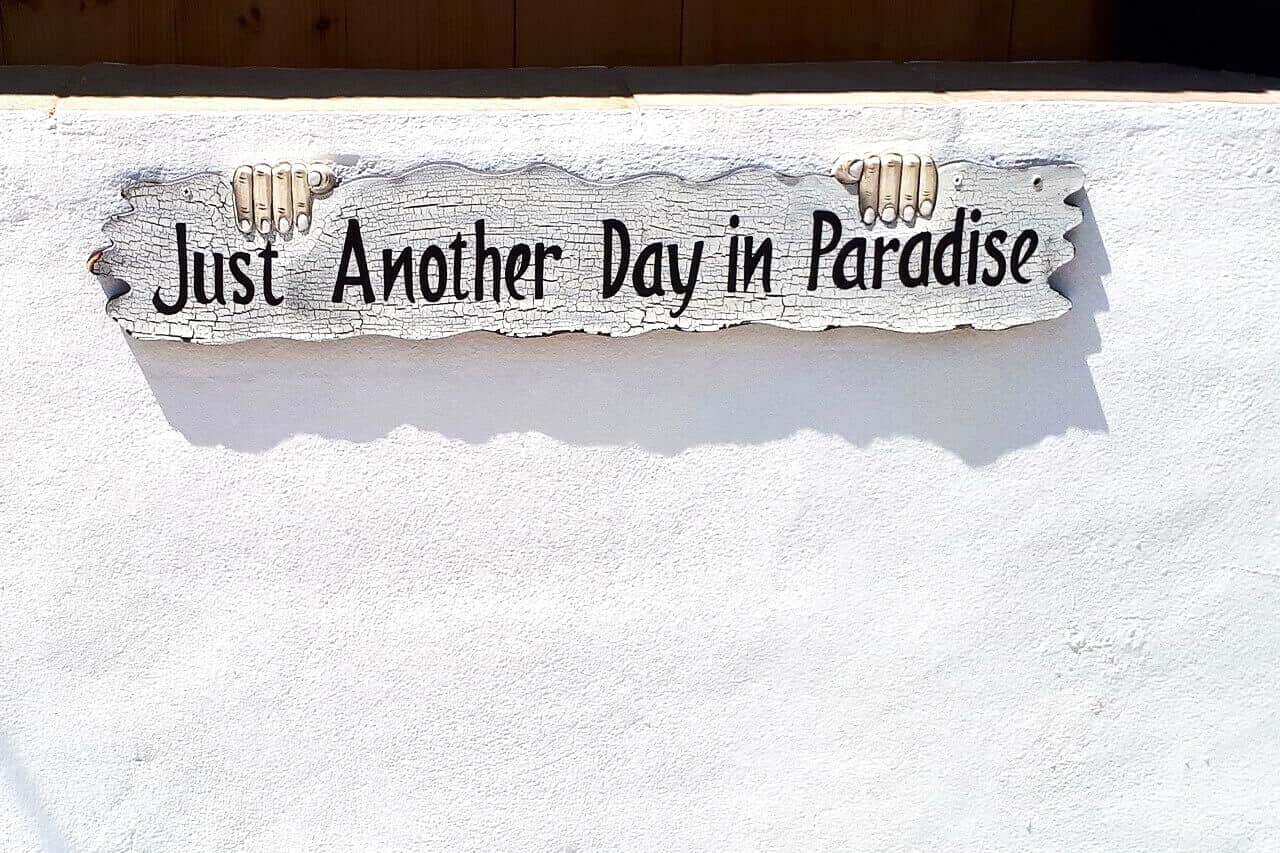 Just Another Day in Paradise